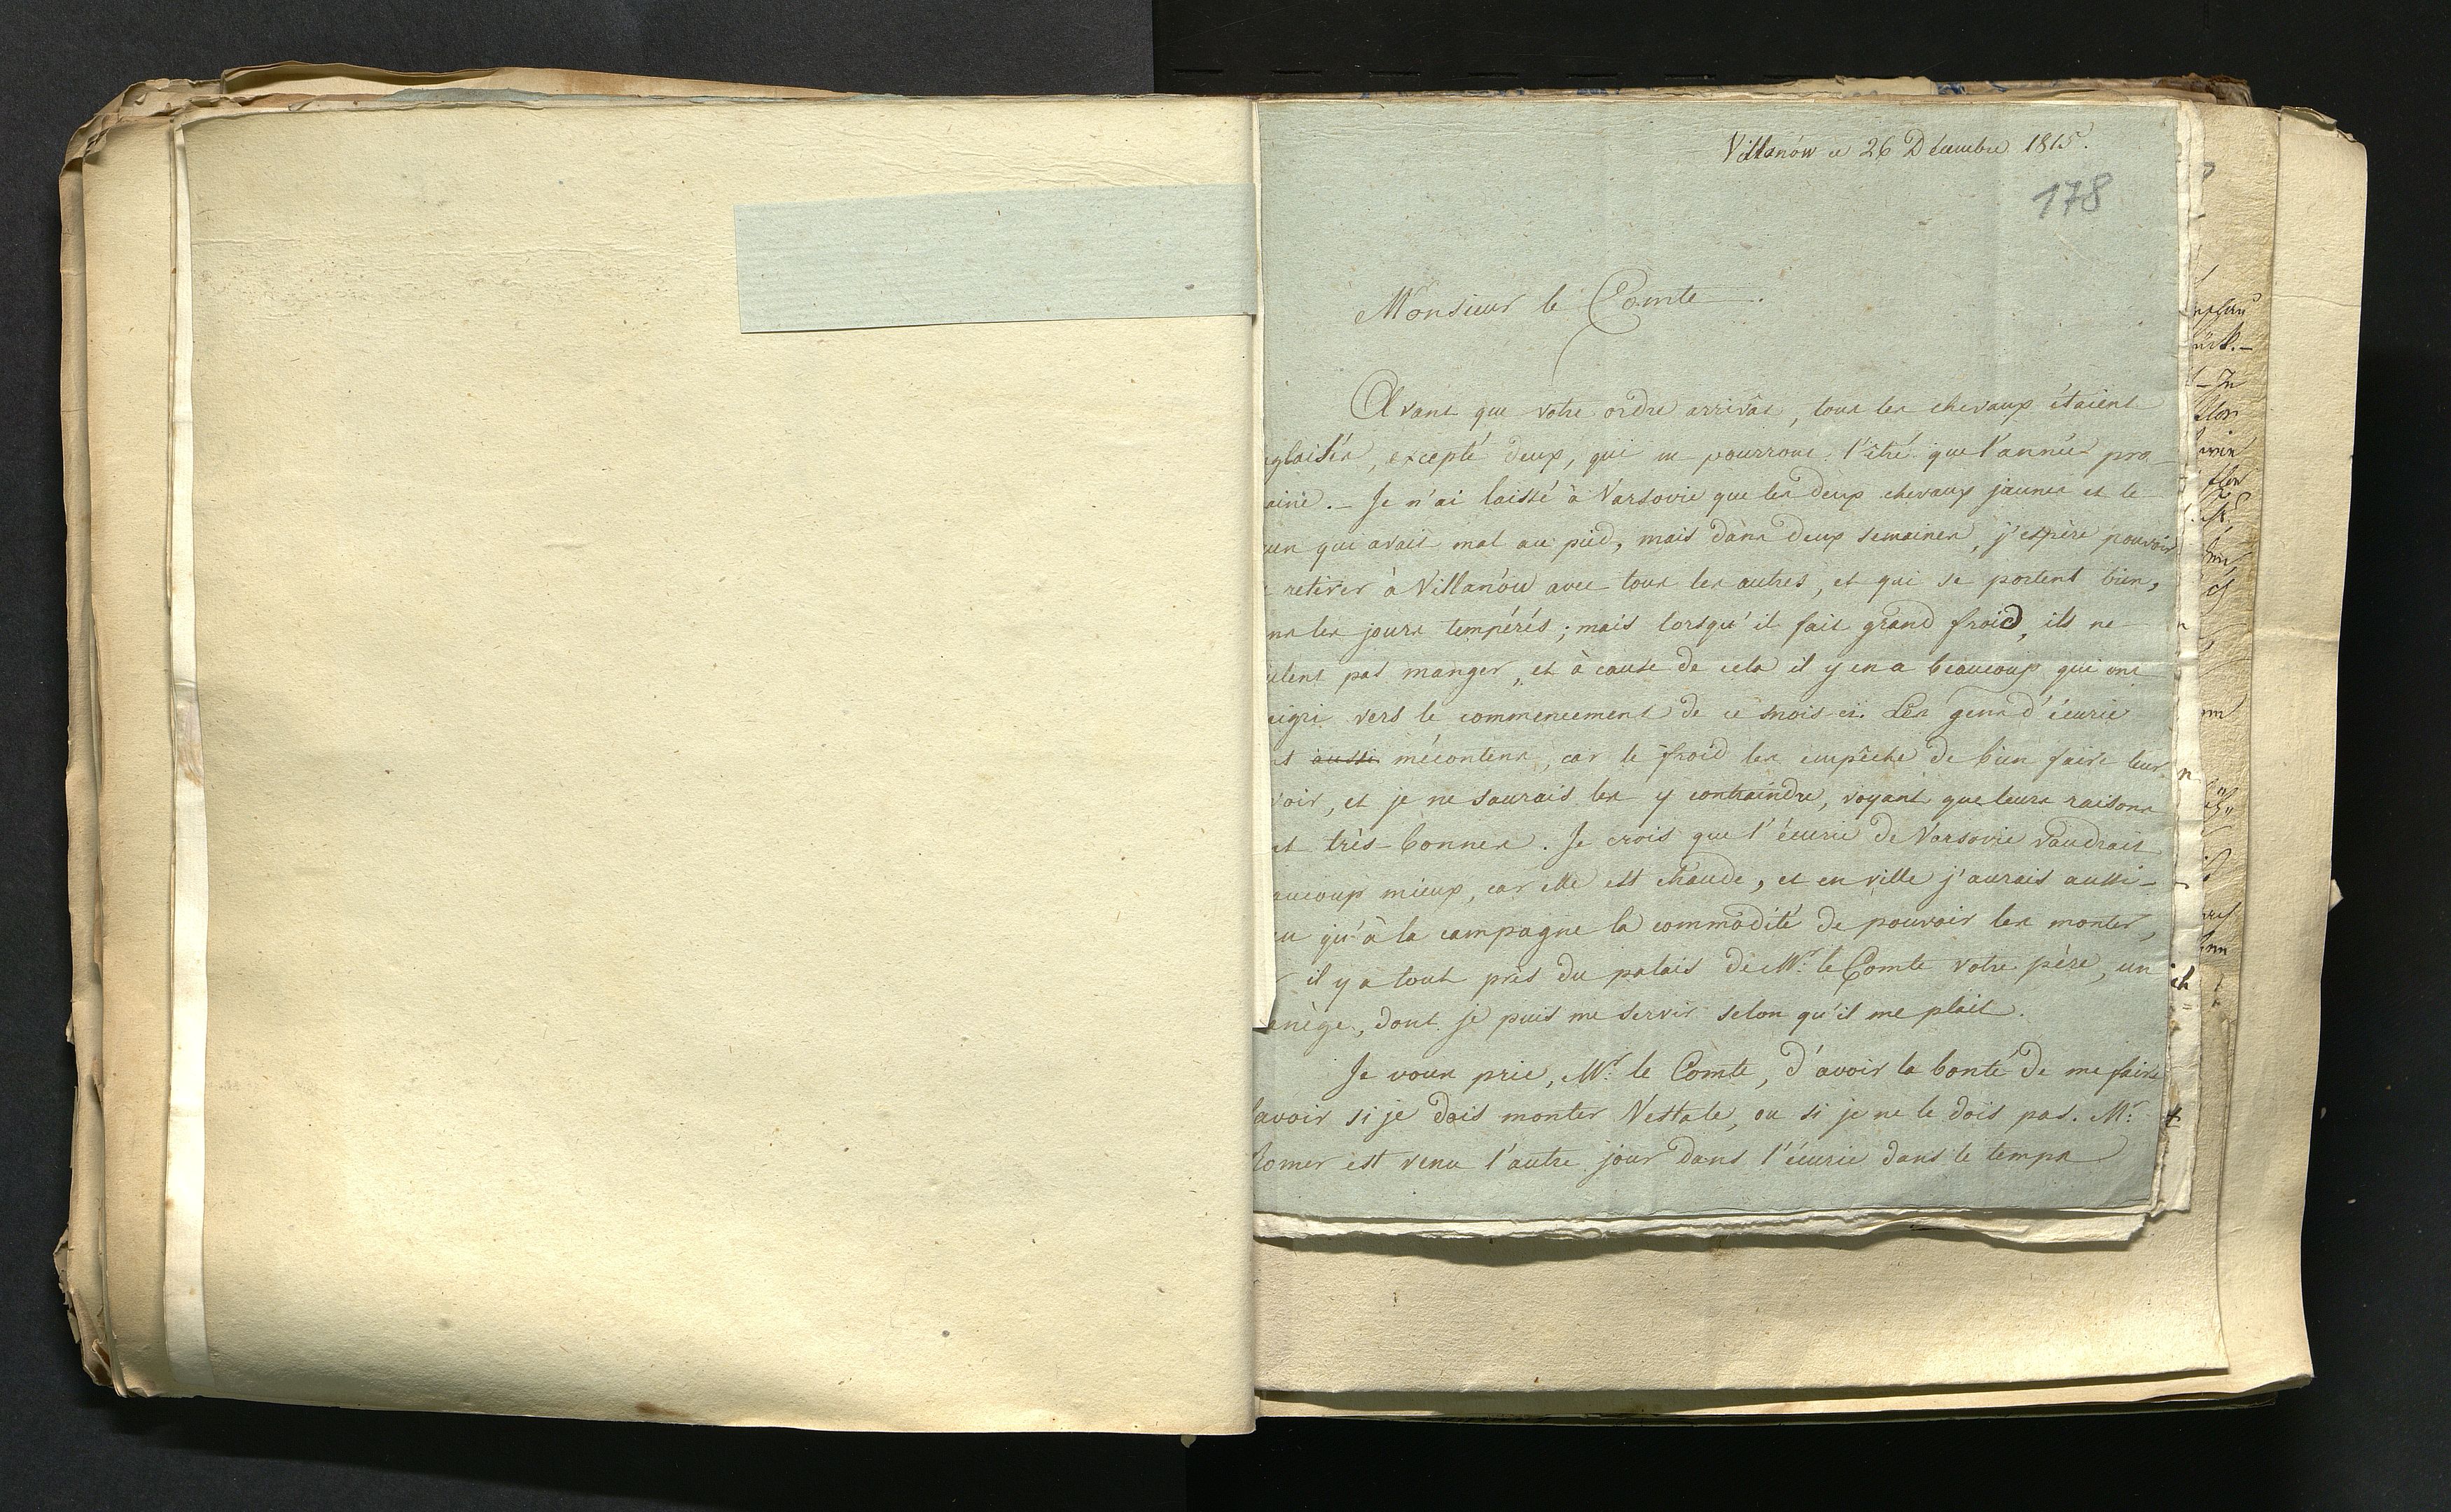 Villanów ce 26 Décembre 1815.
178
Monsieur le Comte.
Avant que votre ordre arrivât, tous les chevaux étaient
glaisés, excepté deux, qui ne pourront l'être que l'année pro-
aine. – Je n'ai laissé à Varsovie que les deux chevaux jaunes et le
un qui avait mal au pied, mais dans deux semaines, j'espère pouvoir
retirer à Villanów avec tous les autres, et qui se portent bien,
ns les jours tempérés; mais lorsqu'il fait grand froid, ils ne
ulent pas manger, et à cause de cela il y en a beaucoup qui ont
aigri vers le commencement de ce mois ci. Les gens d'écurie
nt aussi mécontens, car le froid les empêche de bien faire leur
voir, et je ne saurais les y contraindre, voyant que leurs raisons
nt très-bonnes. Je crois que l'écurie de Varsovie vaudrait
aucoup mieux, car elle est chaude, et en ville j'aurais aussi-
en qu'à la campagne la commodité de pouvoir les monter,
r il y a tout près du palais de Mr. le Comte votre père, un
enège, dont je puis me servir selon qu'il me plait.
Je vous prie, Mr. le Comte, d'avoir la bonté de me faire
savoir si je dois monter Vestale, ou si je ne le dois pas. Mr.
Romer est venu l'autre jour dans l'écurie dans le temps